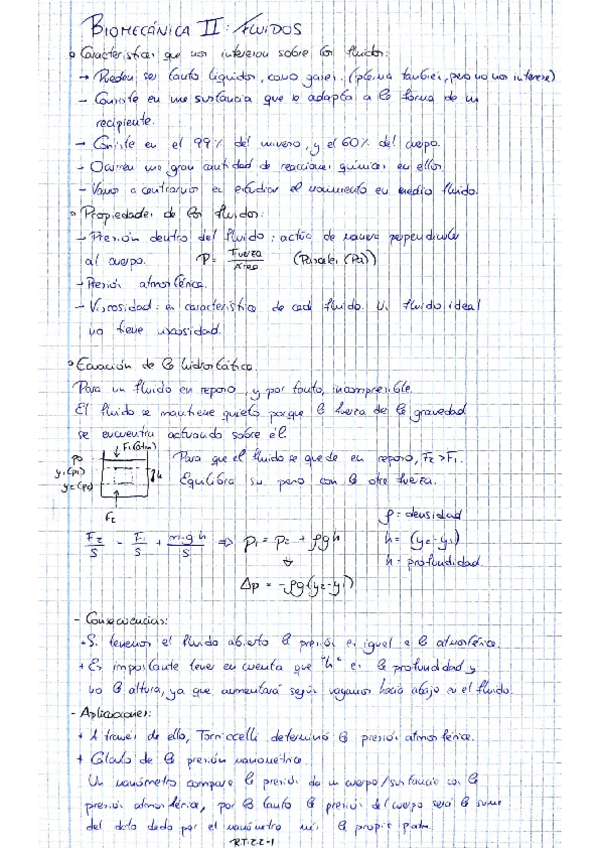 BIOMECÁNICA II: FLUIDOS
° Características que nos interesan sobre los fluidos:
→ Pueden ser tanto líquidos, como gases. (plasma también, pero no nos interesa)
- Consiste en una sustancia que se adapta a la forma de un
recipiente.
- Consiste en el 99% del universo, y el 60% del cuerpo.
- Ocurren una gran cantidad de reacciones químicas en ellos
- Vamos a centrarnos en estudiar el movimiento en medio fluido.
° Propiedades de los fluidos:
- Presión dentro del fluido: actúa de manera perpendicular
al cuerpo. P = Fuerza / Área (Pascales (Pa))
- Presión atmosférica.
- Viscosidad: es característica de cada fluido. Un fluido ideal
no tiene viscosidad.
° Ecuación de la hidrostática.
Para un fluido en reposo, y por tanto, incompresible.
El fluido se mantiene quieto porque la fuerza de la gravedad
se encuentra actuando sobre él.
F₁(atm)
p₀
y₁(p₁)
y₂(p₂)
h
F₂
Para que el fluido se quede en reposo, F₂>F₁.
Equilibra su peso con la otra fuerza.
ρ = densidad
F₂/S - F₁/S + m·g·h/S ⇒ p₁ = p₂ + ρgh
h = (y₂-y₁)
h = profundidad.
Δp = -ρg(y₂-y₁)
- Consecuencias:
+ Si tenemos el fluido abierto la presión es igual a la atmosférica.
+ Es importante tener en cuenta que "h" es la profundidad y
no la altura, ya que aumentará según vayamos hacia abajo en el fluido.
- Aplicaciones:
+ A través de ello, Torriccelli determinó la presión atmosférica.
+ Cálculo de la presión manométrica.
Un manómetro compara la presión de un cuerpo/sustancia con la
presión atmosférica, por lo tanto la presión del cuerpo será la suma
del dato dado por el manómetro más la propia Patm.
RT-22-1